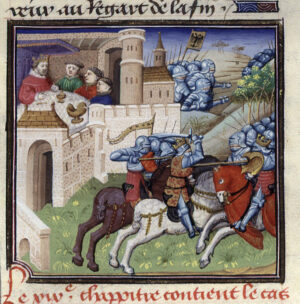 veur au Regart de la fin
Le xiiijᵉ. chappitre contient le cas